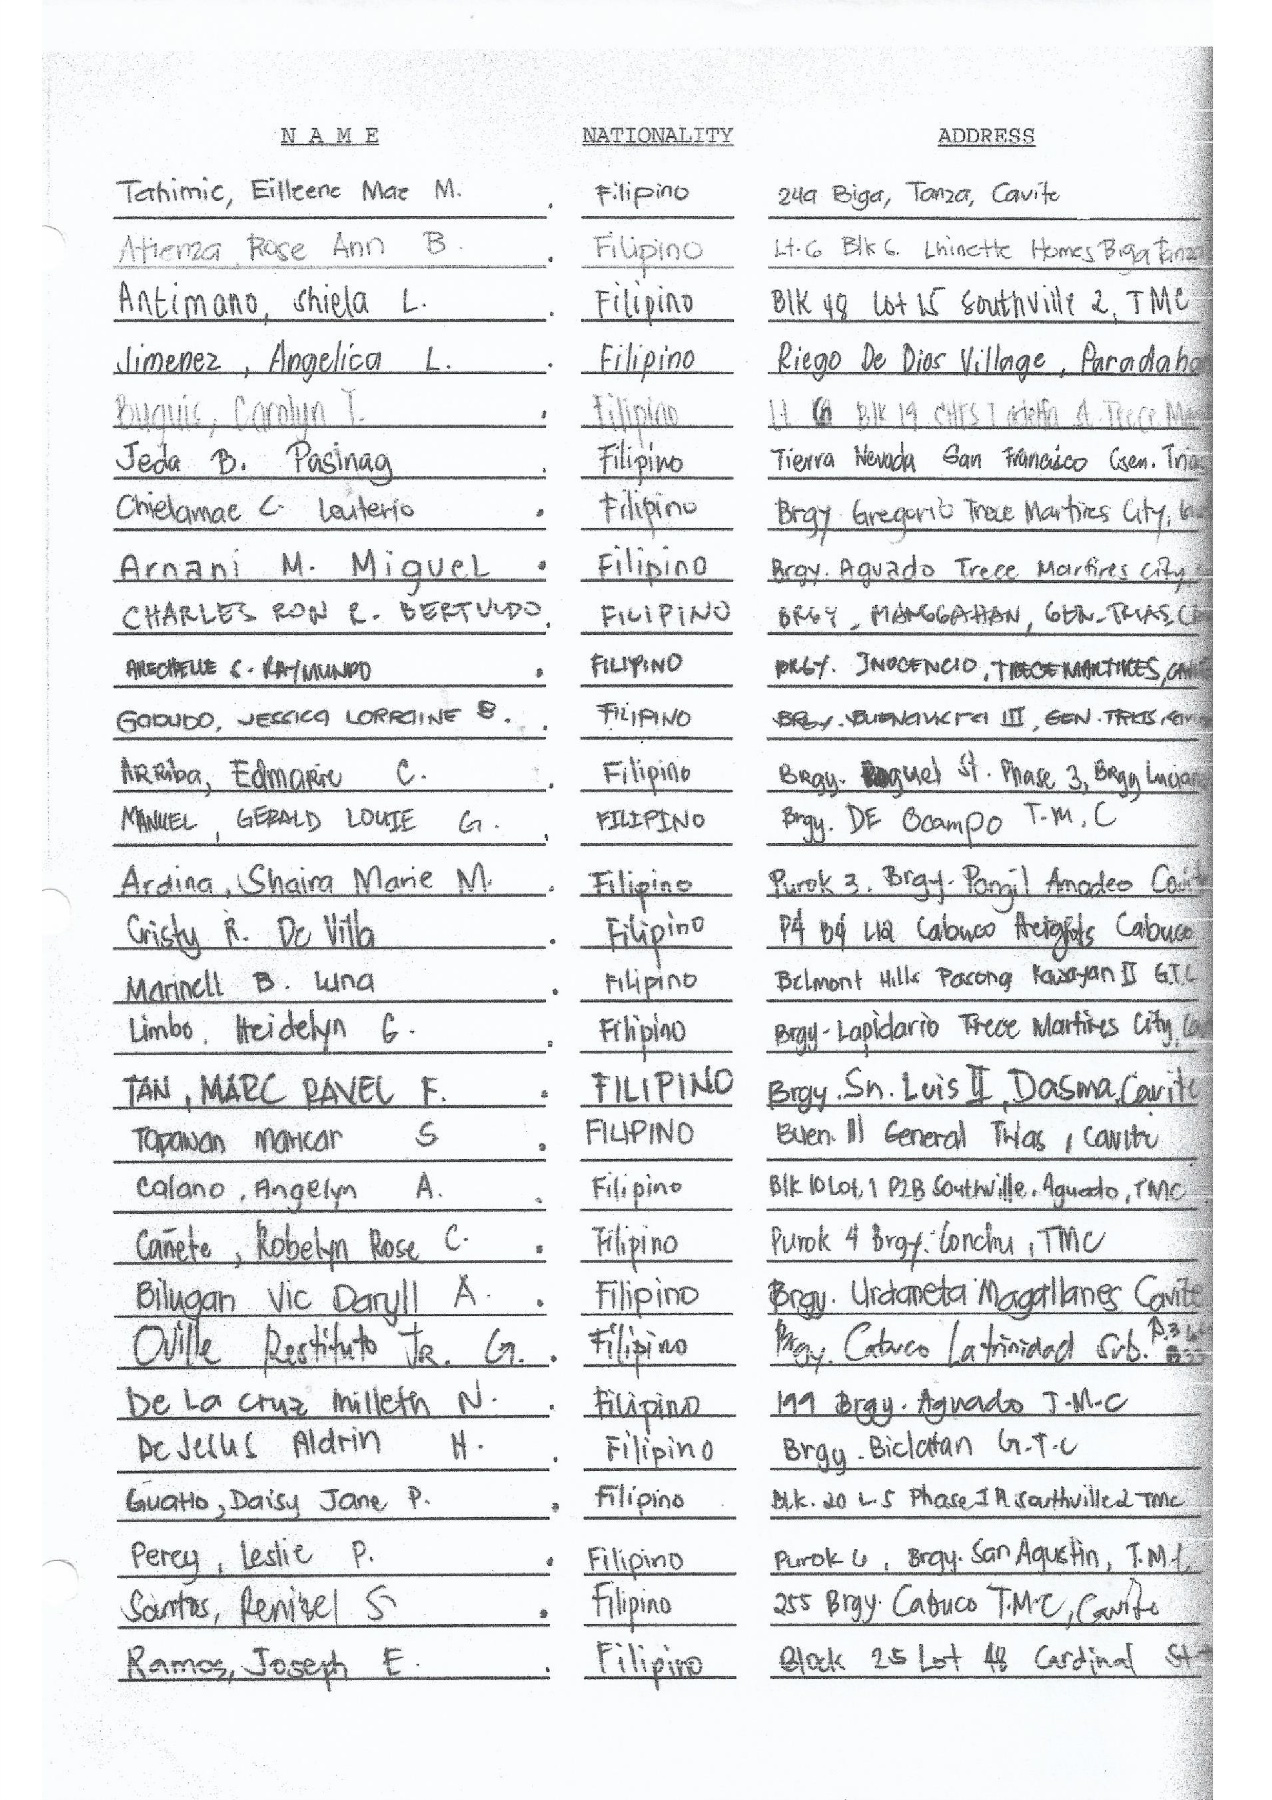 NAME NATIONALITY ADDRESS
Tahimic, Eilleene Mae M. Filipino 249 Biga, Tanza, Cavite
Atienza, Rose Ann B. Filipino Lt. 6 Blk 6. Lhinette Homes Biga Tanza
Antimano, Shiela L. Filipino Blk 48 Lot 15 Southville 2, TMC
Jimenez, Angelica L. Filipino Riego De Dios Village, Paradaho
Buquis, Carolyn T. Filipino Lt. Blk 19 St. Trece
Jeda B. Pasinag Filipino Tierra Nevada San Francisco Gen. Trias
Chielamae C. Leuterio Filipino Brgy Gregorio Trece Martires City,
Arnani M. Miguel Filipino Brgy. Aguado Trece Martires City,
CHARLES RON R. BERTULDO FILIPINO BRGY. MANGGAHAN, GEN-TRIAS,
ARECHELLE S. RAYMUNDO FILIPINO BRGY. INOCENCIO, TRECE MARTIRES,
GODUDO, JESSICA LORRAINE FILIPINO BRGY. BUENAVISTA III, GEN. TRIAS,
ARRiba, Edmarie C. Filipino Brgy. St. Phase 3, Brgy
MANUEL, GERALD LOUIE G. FILIPINO Brgy. DE Ocampo T.M.C
Ardina, Shaira Marie M. Filipino Purok 3. Brgy. Pangil Amadeo
Cristy R. De Villa Filipino P4 B4 L12 Cabuco Heights Cabuco
Marinell B. Luna Filipino Belmont Hills Pasong Kawayan II G.T.C
Limbo, Heidelyn G. Filipino Brgy-Lapidario Trece Martires City,
TAN, MARC RAVEL F. FILIPINO Brgy. Sn. Luis II, Dasma, Cavite
Tapawan Maricar S FILIPINO Buen. III General Trias, Cavite
Calano, Angelyn A. Filipino Blk 10 Lot, 1 P2B Southville, Aguado, TMC
Cañete, Robelyn Rose C. Filipino Purok 4 Brgy. Conchu, TMC
Bilugan Vic Daryll A. Filipino Brgy. Urdaneta Magallanes Cavite
Oville Restituto Jr. G. Filipino Brgy. Cabuco Latrinidad Sub.
De La Cruz Milleth N. Filipino 199 Brgy. Aguado T.M.C
De Jesus Aldrin H. Filipino Brgy. Biclatan G.T.C
Guatlo, Daisy Jane P. Filipino Blk. 20 L-5 Phase 1A Southville 2 TMC
Percy, Leslie P. Filipino Purok 6, Brgy. San Agustin, T.M.C,
Santos, Renizel S Filipino 255 Brgy. Cabuco T.M.C, Cavite
Ramos, Joseph E. Filipino Block 25 Lot 48 Cardinal St